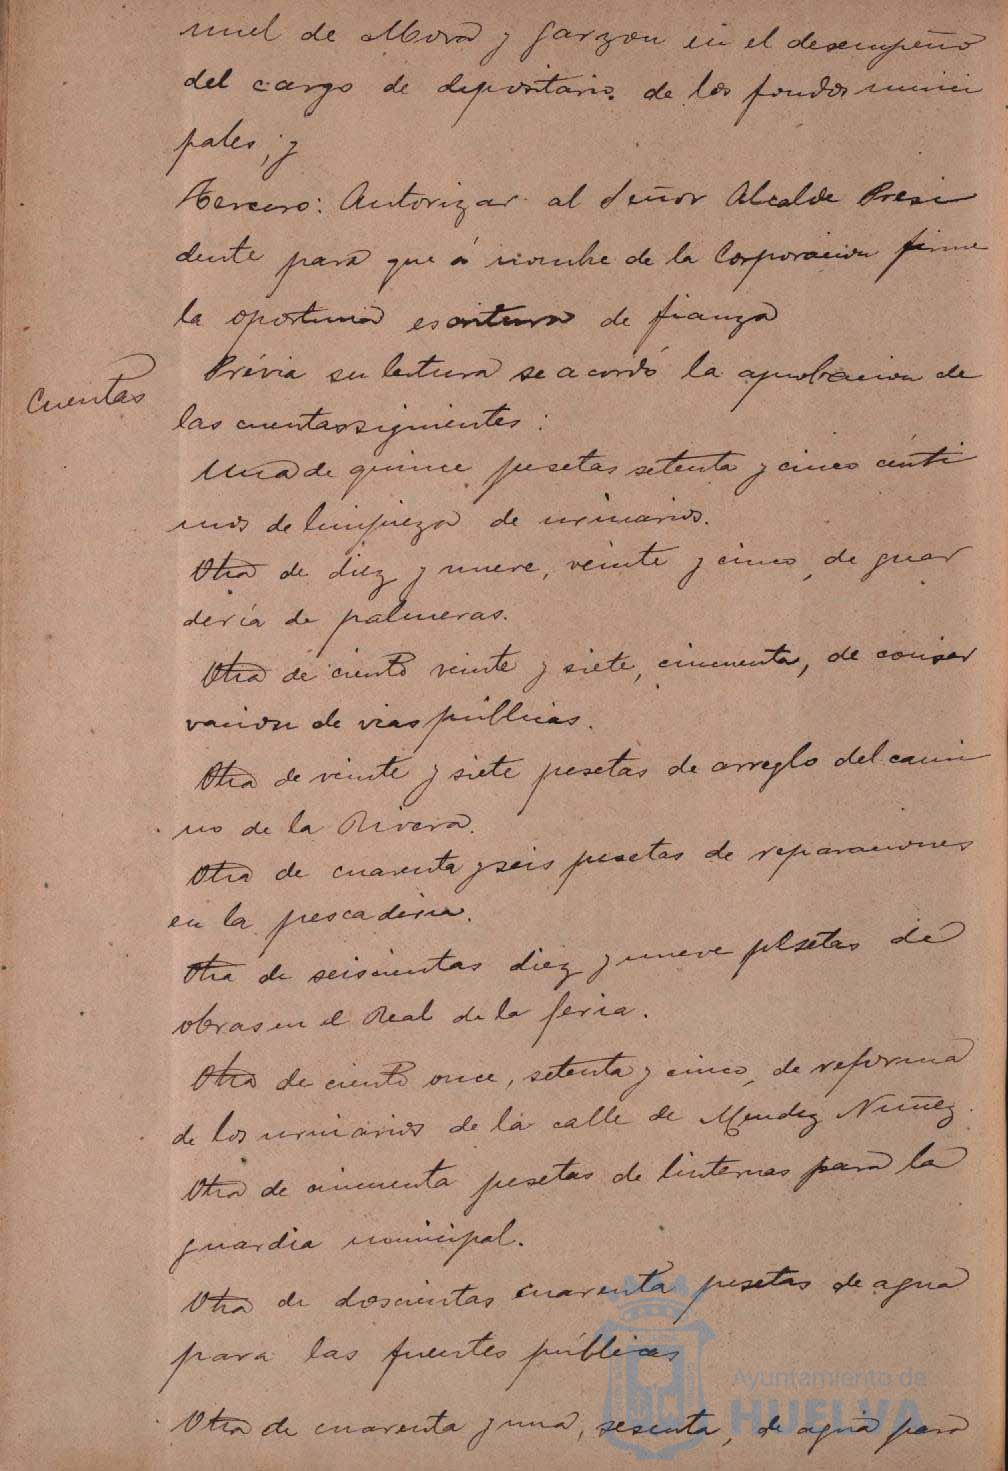 nuel de Mora y Garzon en el desempeño
del cargo de depositario de los fondos munici
pales; y
Tercero: Autorizar al Señor Alcalde Presi
dente para que á nombre de la Corporacion firme
la oportuna escritura de fianza
Cuentas
Prévia su lectura se acordó la aprobacion de
las cuentas siguientes:
Una de quince pesetas setenta y cinco cénti
mos de limpieza de urinarios.
Otra de diez y nueve, veinte y cinco, de guar
dería de palmeras.
Otra de ciento veinte y siete, cincuenta, de conser
vacion de vias públicas.
Otra de veinte y siete pesetas de arreglo del cami
no de la Rivera.
Otra de cuarenta y seis pesetas de reparaciones
en la pescaderia.
Otra de seiscientas diez y nueve pesetas de
obras en el Real de la feria.
Otra de ciento once, setenta y cinco, de reforma
de los urinarios de la calle de Mendez Nuñez.
Otra de cincuenta pesetas de linternas para la
guardia municipal.
Otra de doscientas cuarenta pesetas de agua
para las fuentes públicas
Otra de cuarenta y una, sesenta, de agua para
Ayuntamiento de
HUELVA